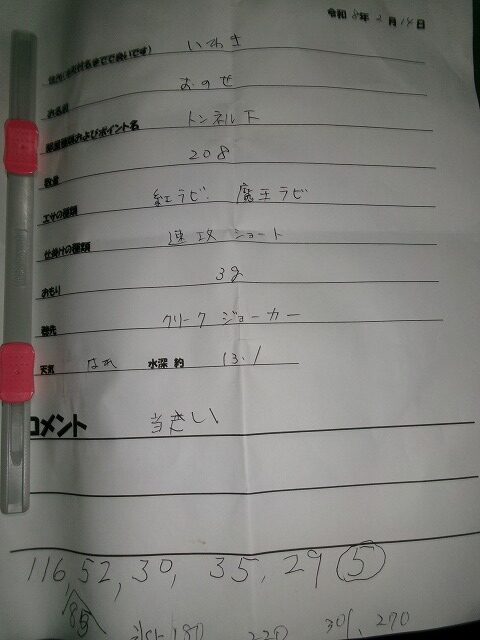 令和 8年 2月 14日
住所(市町村名までで良いです) いわき
お名前 おのせ
部屋番号およびポイント名 トンネル下
数量 208
エサの種類 紅ラビ 魔王ラビ
仕掛けの種類 速攻 ショート
おもり 3g
穂先 クリーク ジョーカー
天気 はれ 水深 約 13.1
コメント
116, 52, 30, 35, 29 ⑤
85
180 220 301, 270